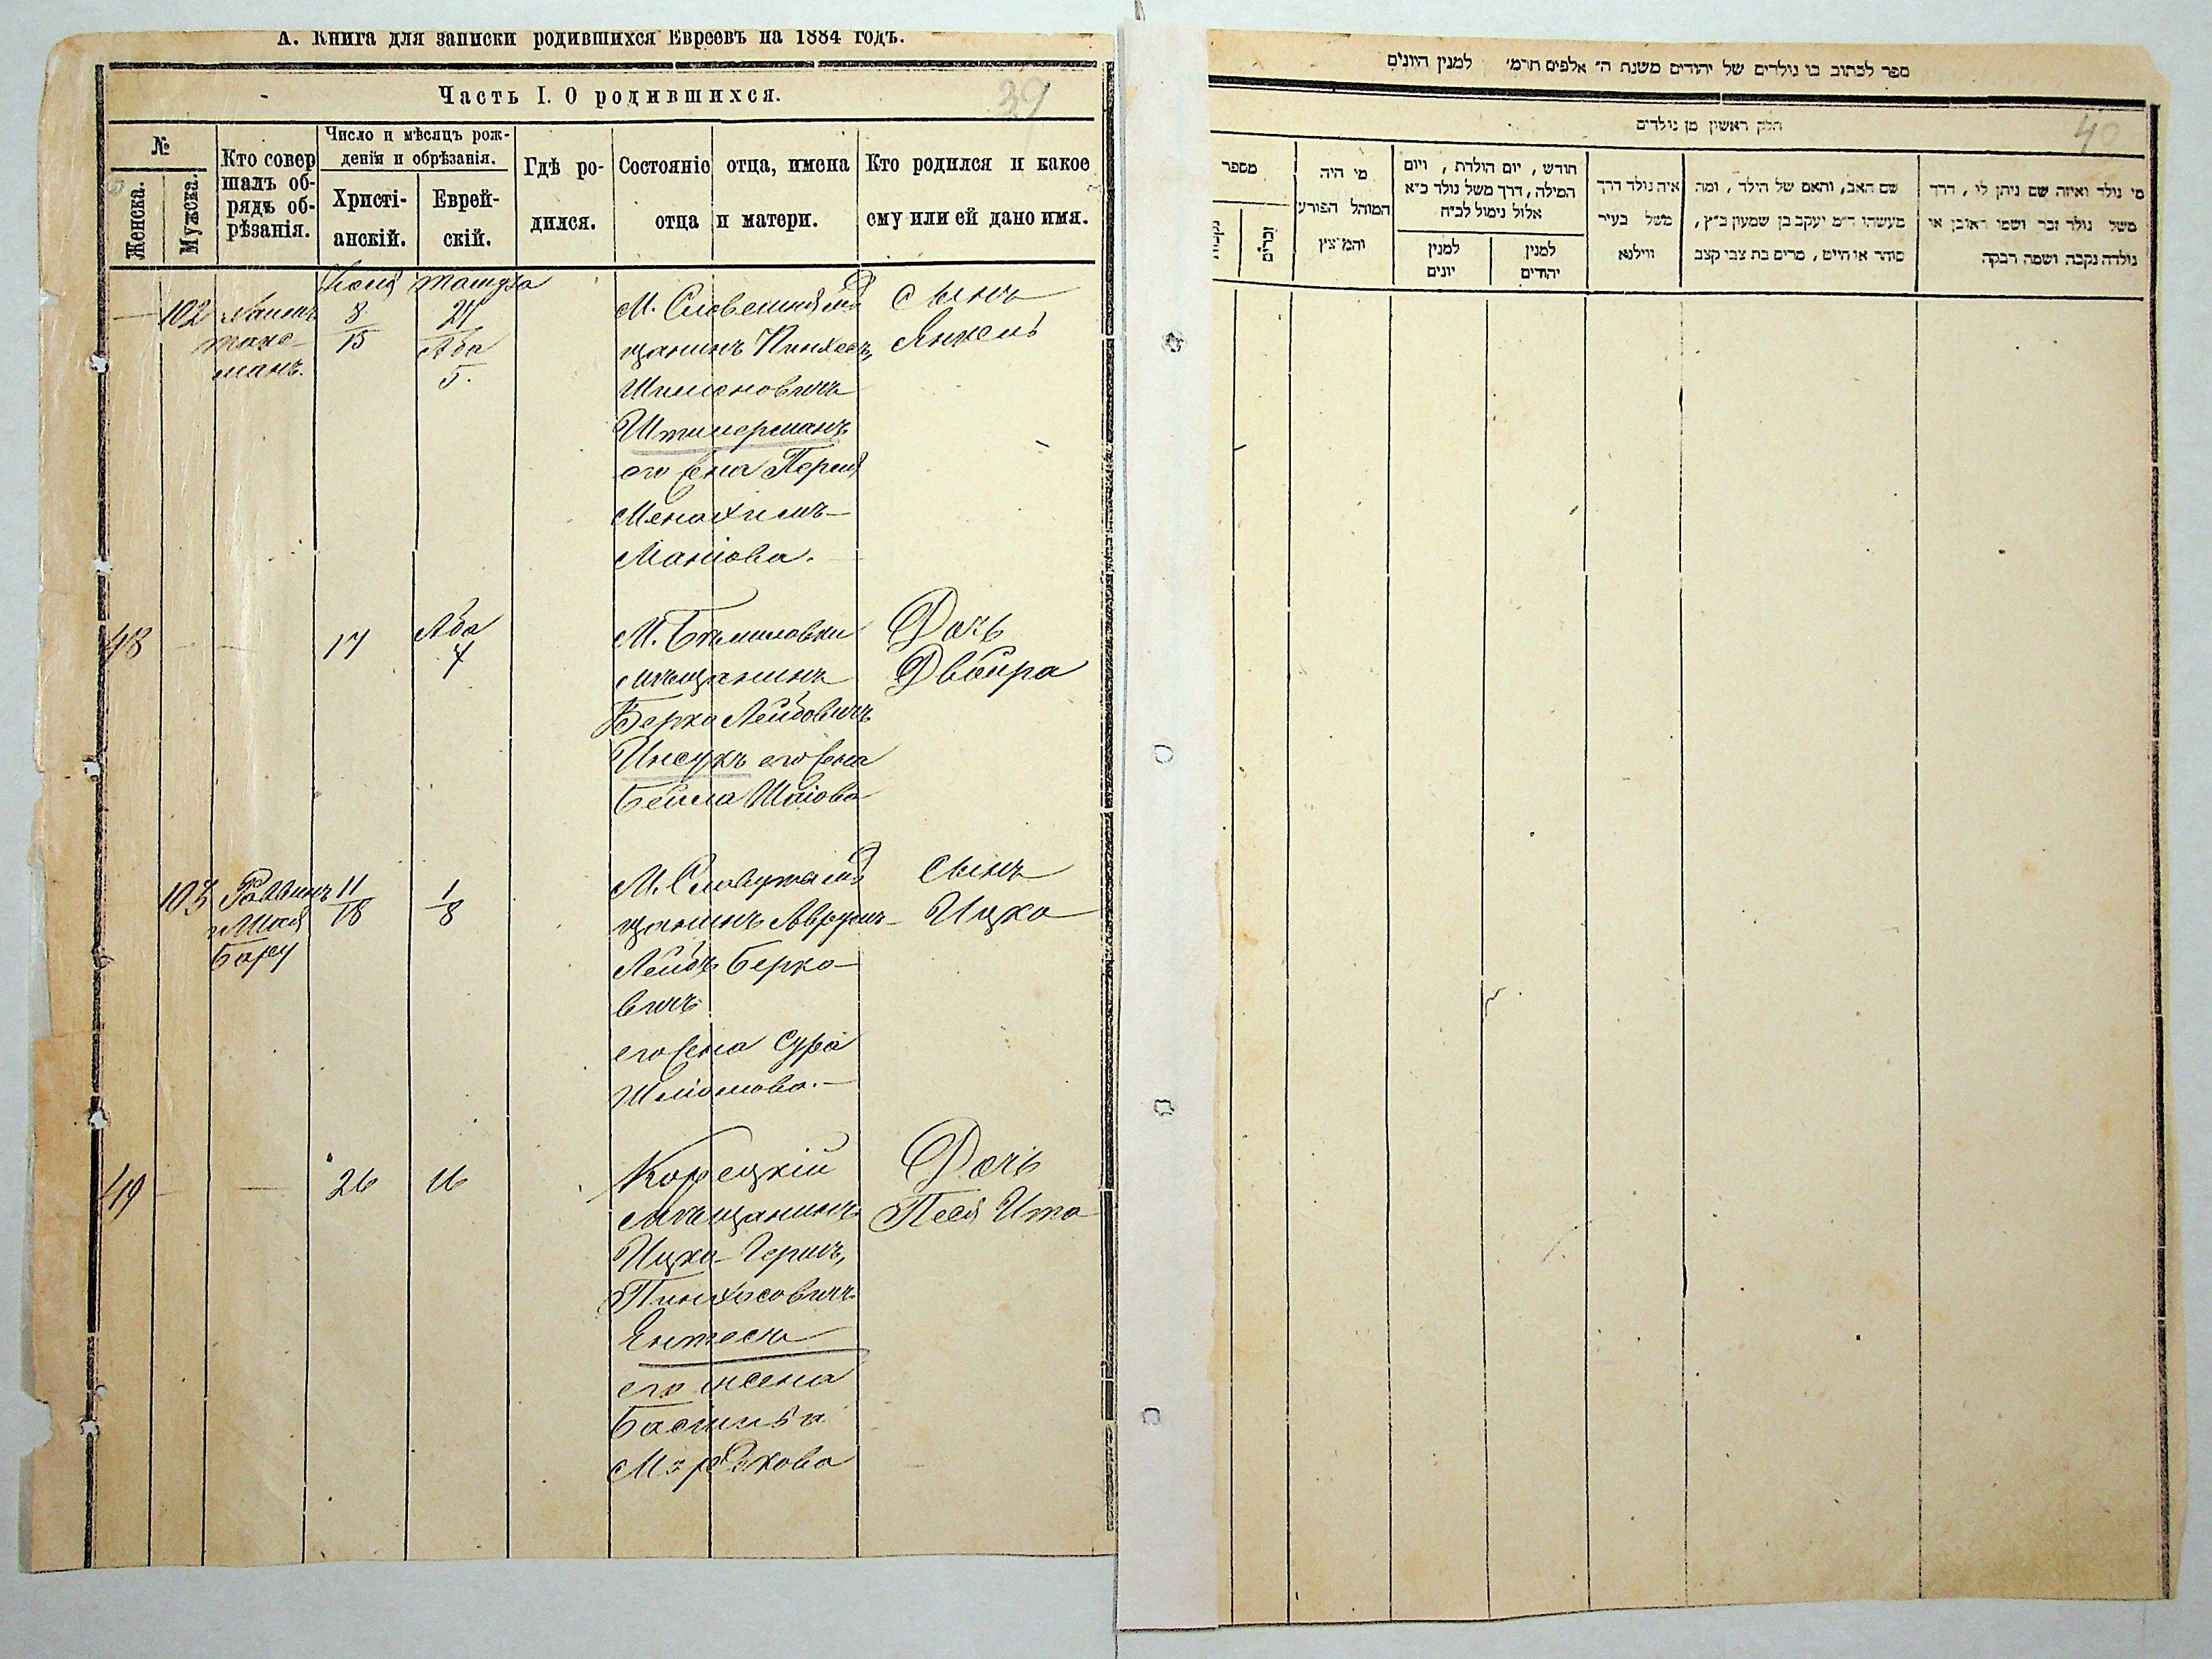 А. Книга для записки родившихся Евреевъ на 1884 годъ.
Часть I. О родившихся.
39
№
Женска.
Мужска.
Кто совершалъ обрядъ обрѣзанія.
Число и мѣсяцъ рожденія и обрѣзанія.
Христіанскій.
Еврейскій.
Гдѣ родился.
Состояніе отца, имена отца и матери.
Кто родился и какое ему или ей дано имя.
102
8
15
Аба
5.
щанинъ Пинхасъ
Шимоновичъ
Штилерманъ
его жена Перля
Менахимъ-
Маніова.
Сынъ
Янкель
48
17
Аба
7
мѣщанинъ
Берко Лейбовичъ
его жена
Бейла Шаіова
Дочь
Двойра
103
Раввинъ
11
18
1
8
М. Славута мѣ
щанинъ Аврумъ-
Лейбъ Берко-
вичъ
его жена Сура
Шліомова.-
Сынъ
Ицко
49
26
16
Корецкій
мѣщанинъ
Ицко-Гершъ
Пинхасовичъ
его жена
Мордкова
Дочь
Песя Ита
ספר לכתוב בו נולדים של יהודים משנת ה׳ אלפים תרמ׳ למנין היונים
חלק ראשון מן נולדים
40
מספר
זכרים
מי היה
המוהל הפורע
והמוצץ
חודש , יום הולדת , ויום
המילה, דרך משל נולד כ״א
אלול נימול לכ״ח
למנין
יונים
למנין
יהודים
איה נולד דרך
משל בעיר
ווילנא
שם האב, והאם של הילד , ומה
מעשהו ד״מ יעקב בן שמעון כ״ץ,
סוחר או חייט, מרים בת צבי קצב
מי נולד ואיזה שם ניתן לו , דרך
משל נולד זכר ושמו ראובן או
נולדה נקבה ושמה רבקה